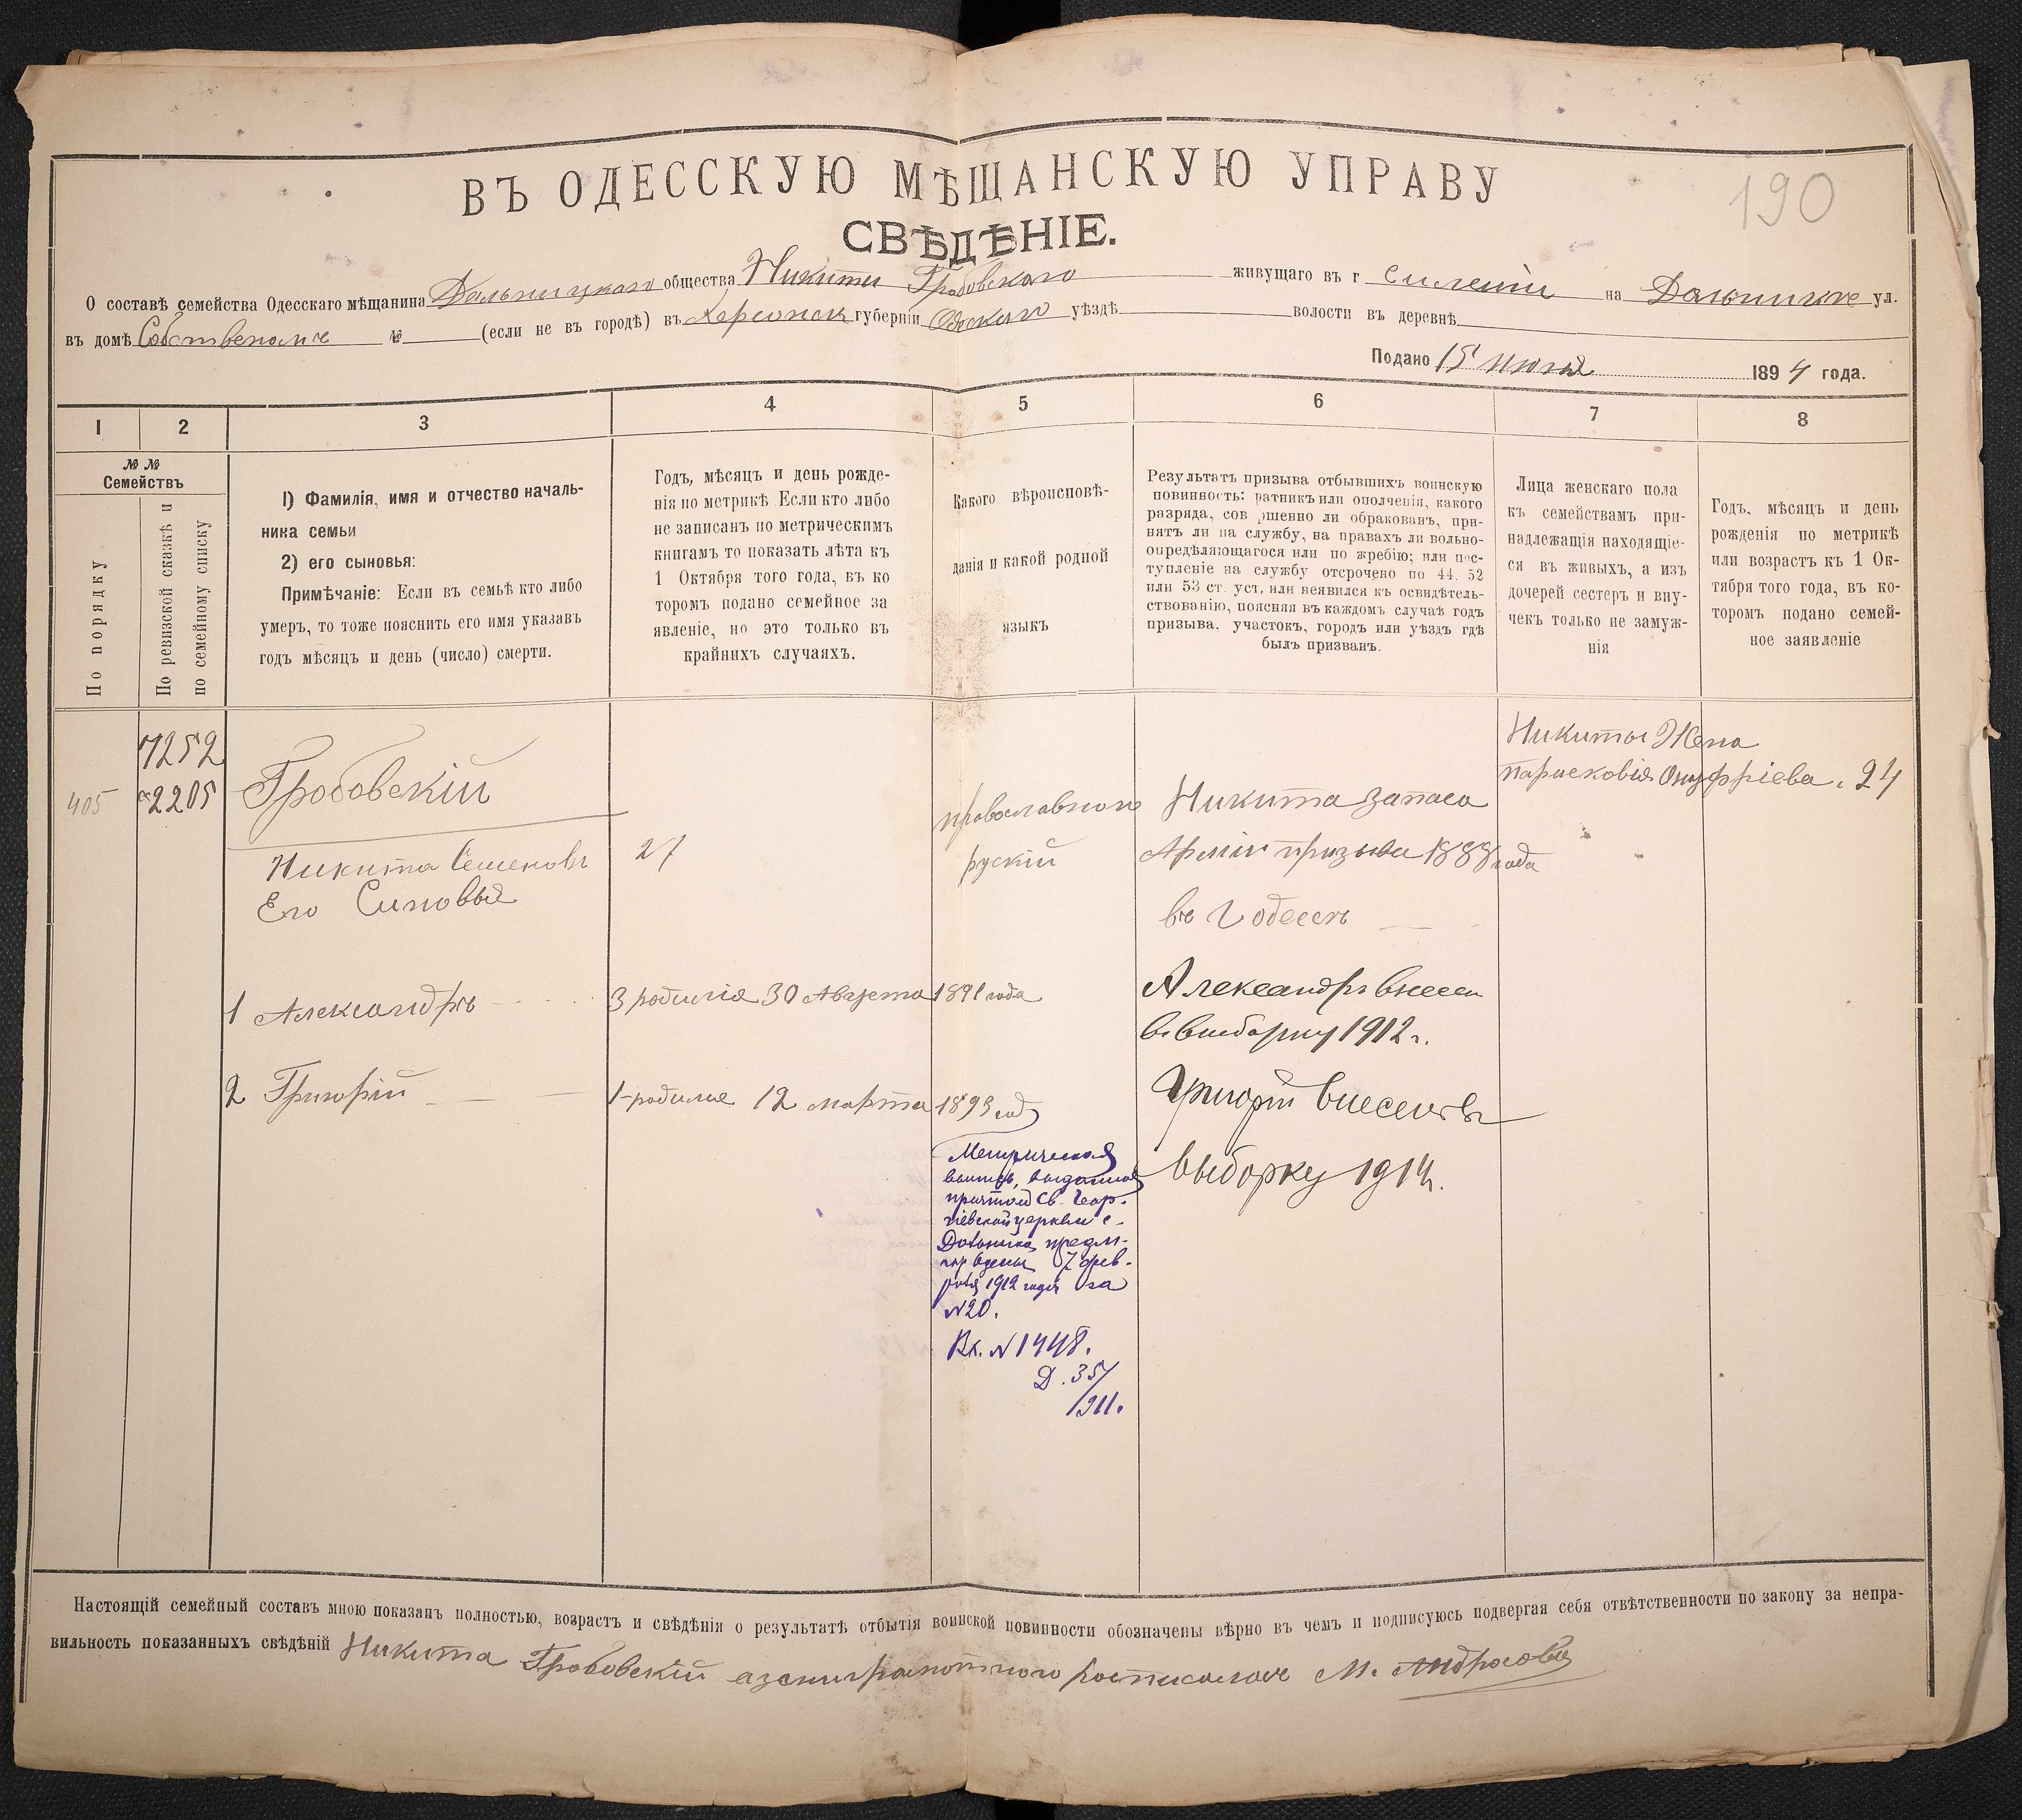 190
ВЪ ОДЕССКУЮ МѢЩАНСКУЮ УПРАВУ
СВѢДѢНІЕ.
О составѣ семейства Одесскаго мѣщанина Дальницкаго общества Никиты Гробовскаго живущаго въ г селеніи на Дальнике ул.
въ домѣ Собственоме № (если не въ городѣ) въ Херсонск губерніи Одескаго уѣздѣ волости въ деревнѣ
Подано 15 июня 1894 года.
1 2 3 4 5 6 7 8
№ №
Семействъ
По порядку
По ревизской сказкѣ и
по семейному списку
1) Фамилія, имя и отчество началь-
ника семьи
2) его сыновья:
Примѣчаніе: Если въ семьѣ кто либо
умеръ, то тоже пояснить его имя указавъ
годъ мѣсяцъ и день (число) смерти.
Годъ, мѣсяцъ и день рожде-
нія по метрикѣ Если кто либо
не записанъ по метрическимъ
книгамъ то показать лѣта къ
1 Октября того года, въ ко
торомъ подано семейное за
явленіе, но это только въ
крайнихъ случаяхъ.
Какого вѣроисповѣ-
данія и какой родной
языкъ
Результатъ призыва отбывшихъ воинскую
повинность: ратникъ или ополченія, какого
разряда, сов ршенно ли обракованъ, при-
нятъ ли на службу, на правахъ ли вольно-
опредѣляющагося или по жребію; или пос-
тупленіе на службу отсрочено по 44. 52
или 53 ст. уст, или неявился къ освидѣтель-
ствованію, поясняя въ каждомъ случаѣ годъ
призыва, участокъ, городъ или уѣздъ гдѣ
былъ призванъ.
Лица женскаго пола
къ семействамъ при-
надлежащія находящіе-
ся въ живыхъ, а изъ
дочерей сестеръ и вну-
чекъ только не замуж-
нія
Годъ, мѣсяцъ и день
рожденія по метрикѣ
или возрастъ къ 1 Ок-
тября того года, въ ко-
торомъ подано семей-
ное заявленіе
405
7252
2205
Гробовскій
Никита Семеновъ
Его Синовья
27
православного
рускій
Никита Запаса
Арміи призыва 1888 года
въ г одессъ
Никиты Жена
парасковія Онуфріева. 24
1 Александръ
3 родился 30 Августа 1891 года
Александръ внесен
въ выборку 1912 г.
2 Григорій
1 - родился 12 марта 1893 год
Григорій внесенъ въ
выборку 1914.
Метрическая
выпись, выданная
притом Св. Геор-
гіевской церкви с.
Дальника, предм-
Одессы 7 фев-
раля 1912 года за
№20.
Вх. №1448.
Д. 357/
/911.
Настоящій семейный составъ мною показанъ полностью, возрастъ и свѣдѣнія о результатѣ отбытія воинской повинности обозначены вѣрно въ чемъ и подписуюсь подвергая себя отвѣтственности по закону за непра-
вильность показанныхъ свѣдѣній Никита Гробовскій роспісался М. Андросовъ